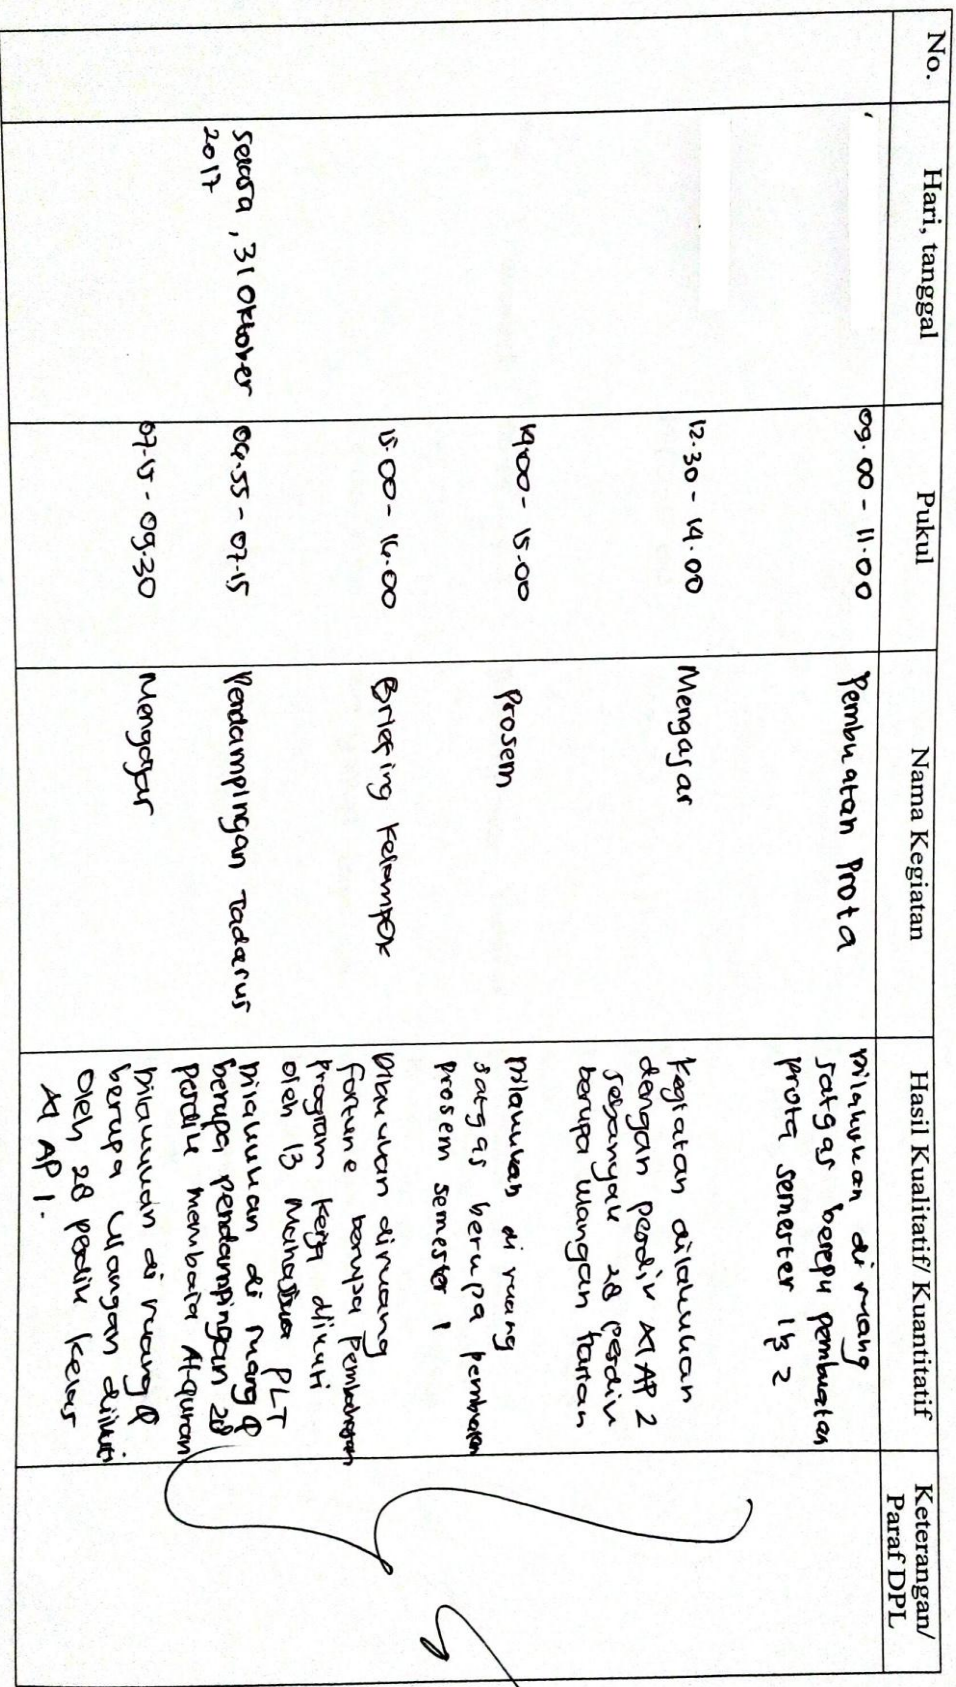 No.
Hari, tanggal
Pukul
Nama Kegiatan
Hasil Kualitatif/ Kuantitatif
Keterangan/
Paraf DPL
09.00 - 11.00
Pembuatan Prota
Dilakukan di ruang
satgas berepu pembuatan
prota semester 1 & 2
12.30 - 14.00
Mengajar
Kegiatan dilakukan
dengan perdik XI AP 2
sebanyak 28 perdik
berupa ulangan harian
14.00 - 15.00
Prosem
Dilakukan di ruang
satgas berupa pembuatan
prosem semester 1
15.00 - 16.00
Briefing Kelompok
Dilakukan diruang
fortune berupa Pembahasan
program kerja diikuti
oleh 13 Mahasiswa PLT
Selasa, 31 Oktober
2017
06.55 - 07.15
Pendampingan Tadarus
Dilakukan di ruang
berupa pendampingan 28
perdik membaca Al-quran
07.15 - 09.30
Mengajar
Dilakukan di ruang
berupa ulangan diikuti
oleh 28 perdik kelas
XI AP 1.